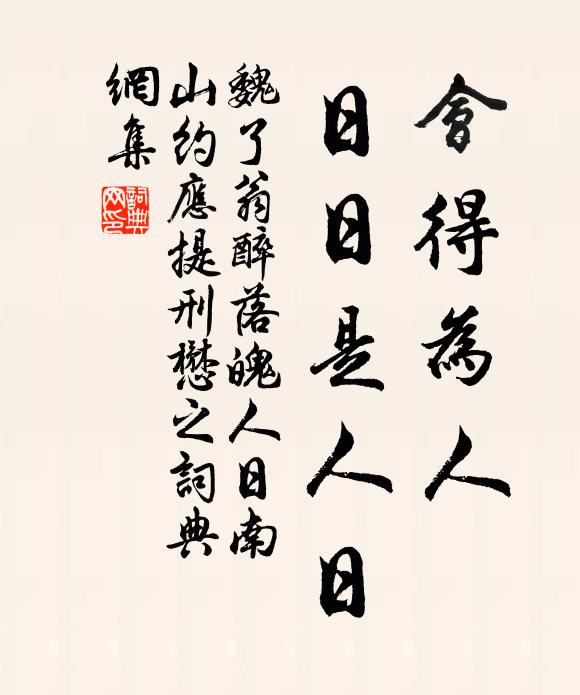 會得為人
日日是人日
魏了翁醉落魄人日南
山約應提刑懋之詞典
網集
詞典
网印